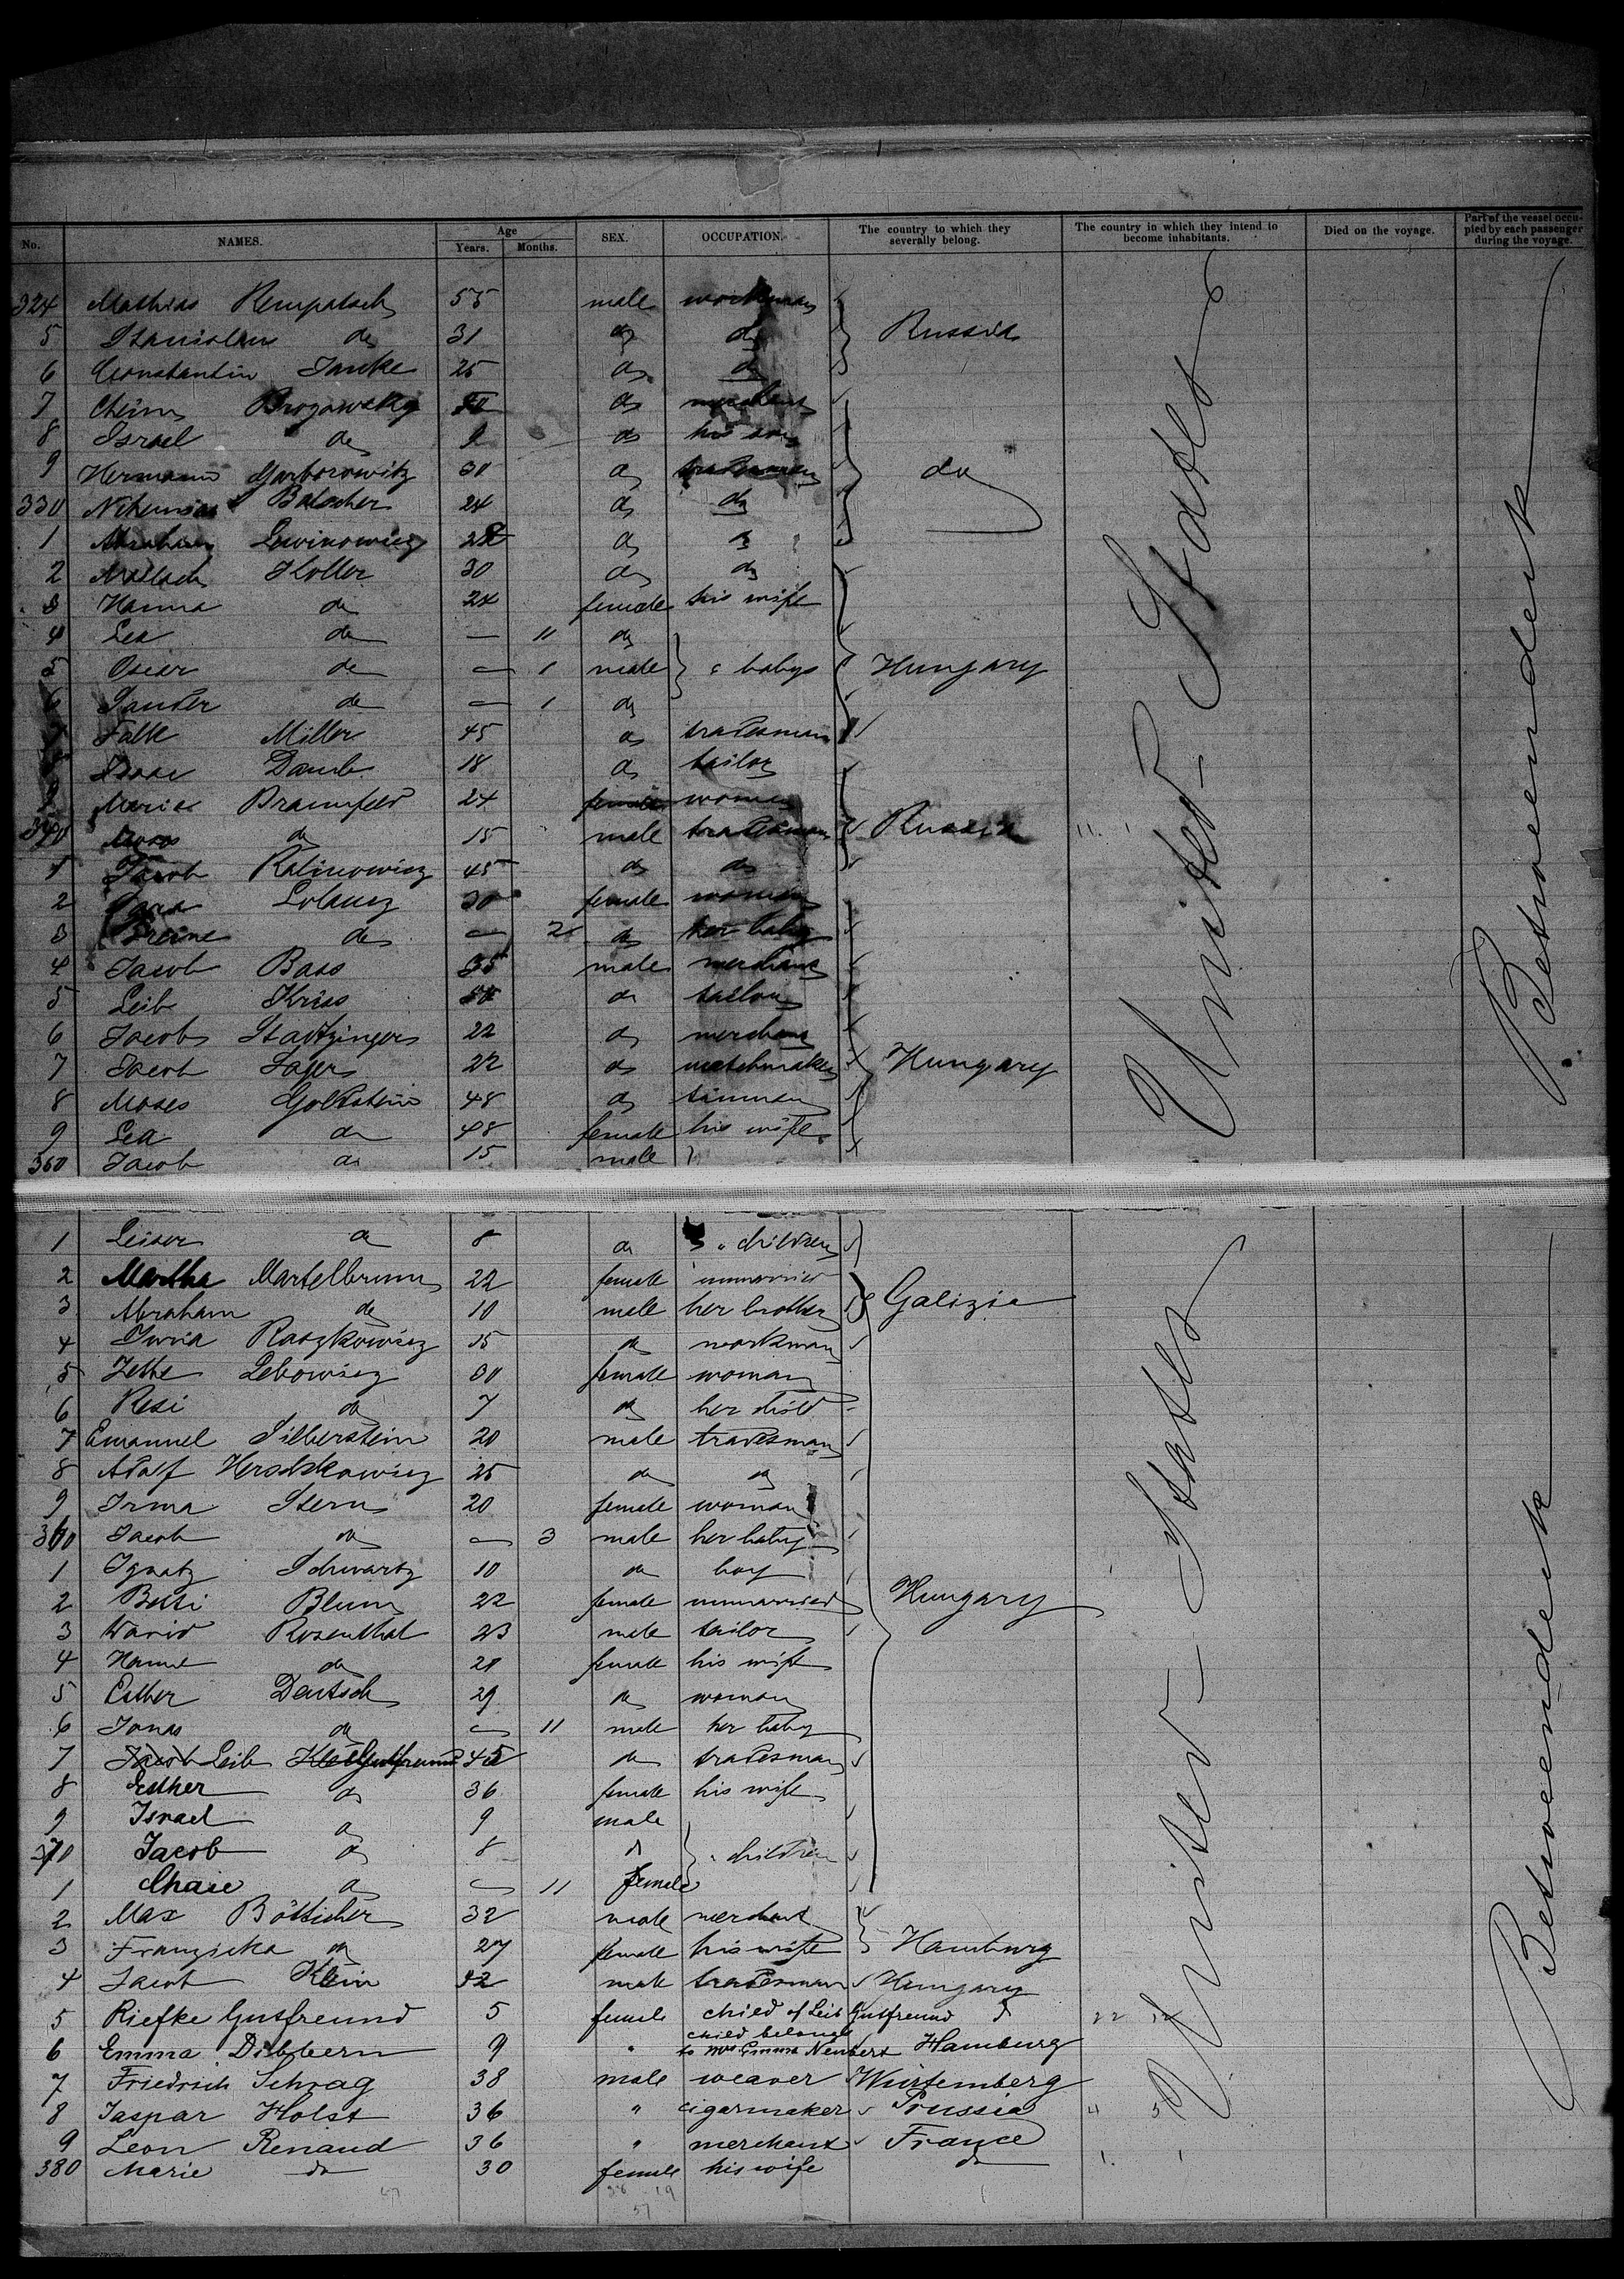 No. NAMES. Age Years. Months. SEX. OCCUPATION. The country to which they severally belong. The country in which they intend to become inhabitants. Died on the voyage. Part of the vessel occupied by each passenger during the voyage.
324 Mathias 55 male workman
5 Stanislau do 31 do do Russia
6 Constantin Janke 25 do do
7 Chaim Brozowsky do merchant
8 Israel do 9 do his son
9 Hermann Garborowitz 30 do tradesman do
330 Batscher 24 do do
1 Abraham Lewinowicz 22 do do
2 Koller 30 do do
3 Hanna do 24 female his wife
4 Lea do — 11 do
5 Oscar do — 1 male " babys Hungary
6 Sander do — 1 do
7 Falk Miller 45 do tradesman
8 Isaac Daub 18 do tailor
9 Maria Braunfeld 24 female woman
340 Moses do 15 male tradesman Russia
1 Jacob Kalinowicz 45 do do
2 Sara 30 female woman
3 do — 2 do her baby
4 Jacob Bass 35 male merchant
5 Leib Kriss do tailor
6 Jacob Startzinger 22 do merchant
7 Jacob Lager 22 do watchmaker Hungary
8 Moses Goldstein 48 do tinman
9 Lea do 48 female his wife
350 Jacob do 15 male
United-States
Betweendeck
1 Leiser do 8 do " children
2 Martha Martelbrunn 22 female unmarried
3 Abraham do 10 male her brother Galizia
4 Raszkowicz 15 do workman
5 Lebowicz 30 female woman
6 Resi do 7 do her child
7 Emanuel Silberstein 20 male tradesman
8 Adolf Herschkowicz 25 do do
9 Irma Stern 20 female woman
360 Jacob do — 3 male her baby
1 Ignatz Schwartz 10 do boy
2 Betti Blum 22 female unmarried Hungary
3 David Rosenthal 23 male tailor
4 Hanne do 21 female his wife
5 Esther Deutsch 29 do woman
6 Jonas do — 11 male her baby
7 Jacob Leib Gutfreund 45 do tradesman
8 Esther do 36 female his wife
9 Israel do 9 male
370 Jacob do 8 do " children
1 Chaie do — 11 female
2 Max Bötticher 32 male merchant
3 Franziska do 27 female his wife Hamburg
4 Jacob Klein 42 male tradesman Hungary
5 Riefke Gutfreund 5 female child of Leib Gutfreund do
6 Emma Dibbern 9 " child belongs to Mrs Emma Neubert Hamburg
7 Friedrich Schrag 38 male weaver Würtemberg
8 Jaspar Holst 36 " cigarmaker Prussia
9 Leon Renaud 36 " merchant France
380 Marie do 30 female his wife do
United-States
Betweendeck